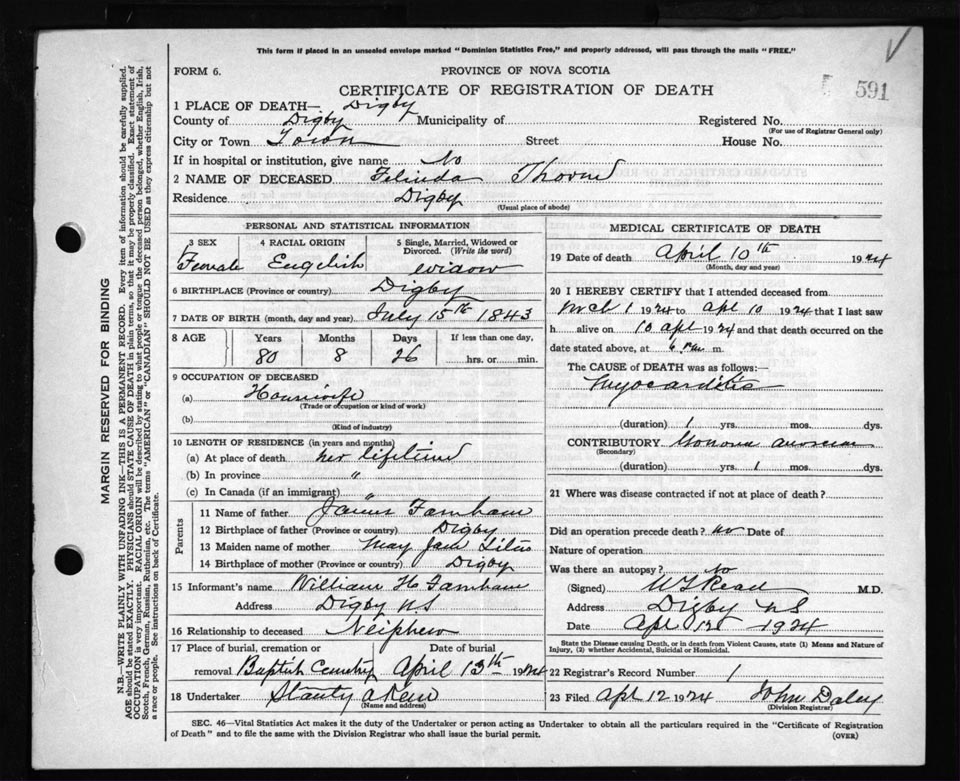 This form if placed in an unsealed envelope marked "Dominion Statistics Free," and properly addressed, will pass through the mails "FREE."
FORM 6.
PROVINCE OF NOVA SCOTIA
CERTIFICATE OF REGISTRATION OF DEATH
591
1 PLACE OF DEATH— Digby
County of Digby Municipality of Registered No.
(For use of Registrar General only)
City or Town Town Street House No.
If in hospital or institution, give name No
2 NAME OF DECEASED Felinda Thorne
Residence Digby
(Usual place of abode)
PERSONAL AND STATISTICAL INFORMATION
3 SEX 4 RACIAL ORIGIN 5 Single, Married, Widowed or Divorced. (Write the word)
Female English widow
6 BIRTHPLACE (Province or country) Digby
7 DATE OF BIRTH (month, day and year) July 15th 1843
8 AGE Years Months Days If less than one day,
80 8 26 hrs. or min.
9 OCCUPATION OF DECEASED
(a) Housewife
(Trade or occupation or kind of work)
(b)
(Kind of industry)
10 LENGTH OF RESIDENCE (in years and months)
(a) At place of death her lifetime
(b) In province "
(c) In Canada (if an immigrant) "
Parents
11 Name of father James Farnham
12 Birthplace of father (Province or country) Digby
13 Maiden name of mother May Jane
14 Birthplace of mother (Province or country) Digby
15 Informant's name William H Farnham
Address Digby NS
16 Relationship to deceased Neiphew
17 Place of burial, cremation or removal Date of burial
Baptist Cemetry April 13th 1924
18 Undertaker
(Name and address)
MEDICAL CERTIFICATE OF DEATH
19 Date of death April 10th 1924
(Month, day and year)
20 I HEREBY CERTIFY that I attended deceased from
Mch 1 1924 to Apl 10 1924 that I last saw
h alive on 10 apl 1924 and that death occurred on
date stated above, at 6 m.
The CAUSE of DEATH was as follows:—
Myocarditis
(duration) 1 yrs. mos. dys.
CONTRIBUTORY
(Secondary)
(duration) yrs. 1 mos. dys.
21 Where was disease contracted if not at place of death?
Did an operation precede death? no Date of
Nature of operation
Was there an autopsy? no
(Signed) M.D.
Address Digby NS
Date Apl 1924
State the Disease causing Death, or in death from Violent Causes, state (1) Means and Nature of Injury, (2) whether Accidental, Suicidal or Homicidal.
22 Registrar's Record Number 1
23 Filed Apl 12 1924 John Daley
(Division Registrar)
SEC. 46—Vital Statistics Act makes it the duty of the Undertaker or person acting as Undertaker to obtain all the particulars required in the "Certificate of Registration
of Death" and to file the same with the Division Registrar who shall issue the burial permit.
(OVER)
MARGIN RESERVED FOR BINDING
N.B.—WRITE PLAINLY WITH UNFADING INK—THIS IS A PERMANENT RECORD. Every item of information should be carefully supplied.
AGE should be stated EXACTLY. PHYSICIANS should STATE CAUSE OF DEATH in plain terms, so that it may be properly classified. Exact statement of
OCCUPATION is very important. RACIAL ORIGIN will be described by stating to what people or tongue the deceased person belonged, whether English, Irish,
Scotch, French, German, Russian, Ruthenian, etc. The terms "AMERICAN" or "CANADIAN" SHOULD NOT BE USED as they express citizenship but not
a race or people. See instructions on back of Certificate.